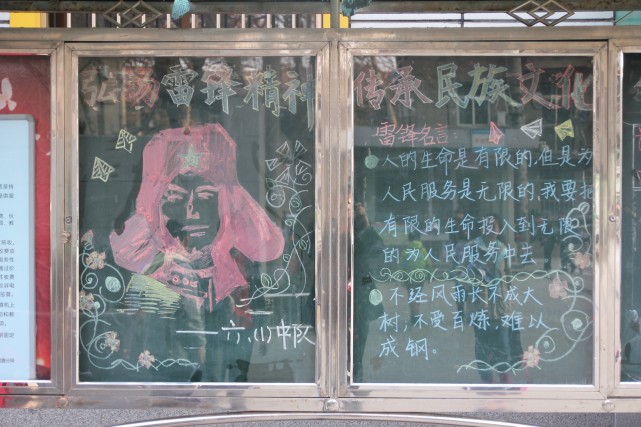 弘扬雷锋精神
——六、(1)中队
传承民族文化
雷锋名言:
人的生命是有限的,但是为
人民服务是无限的,我要把
有限的生命投入到无限
的为人民服务中去
不经风雨长不成大
树,不受百炼,难以
成钢。